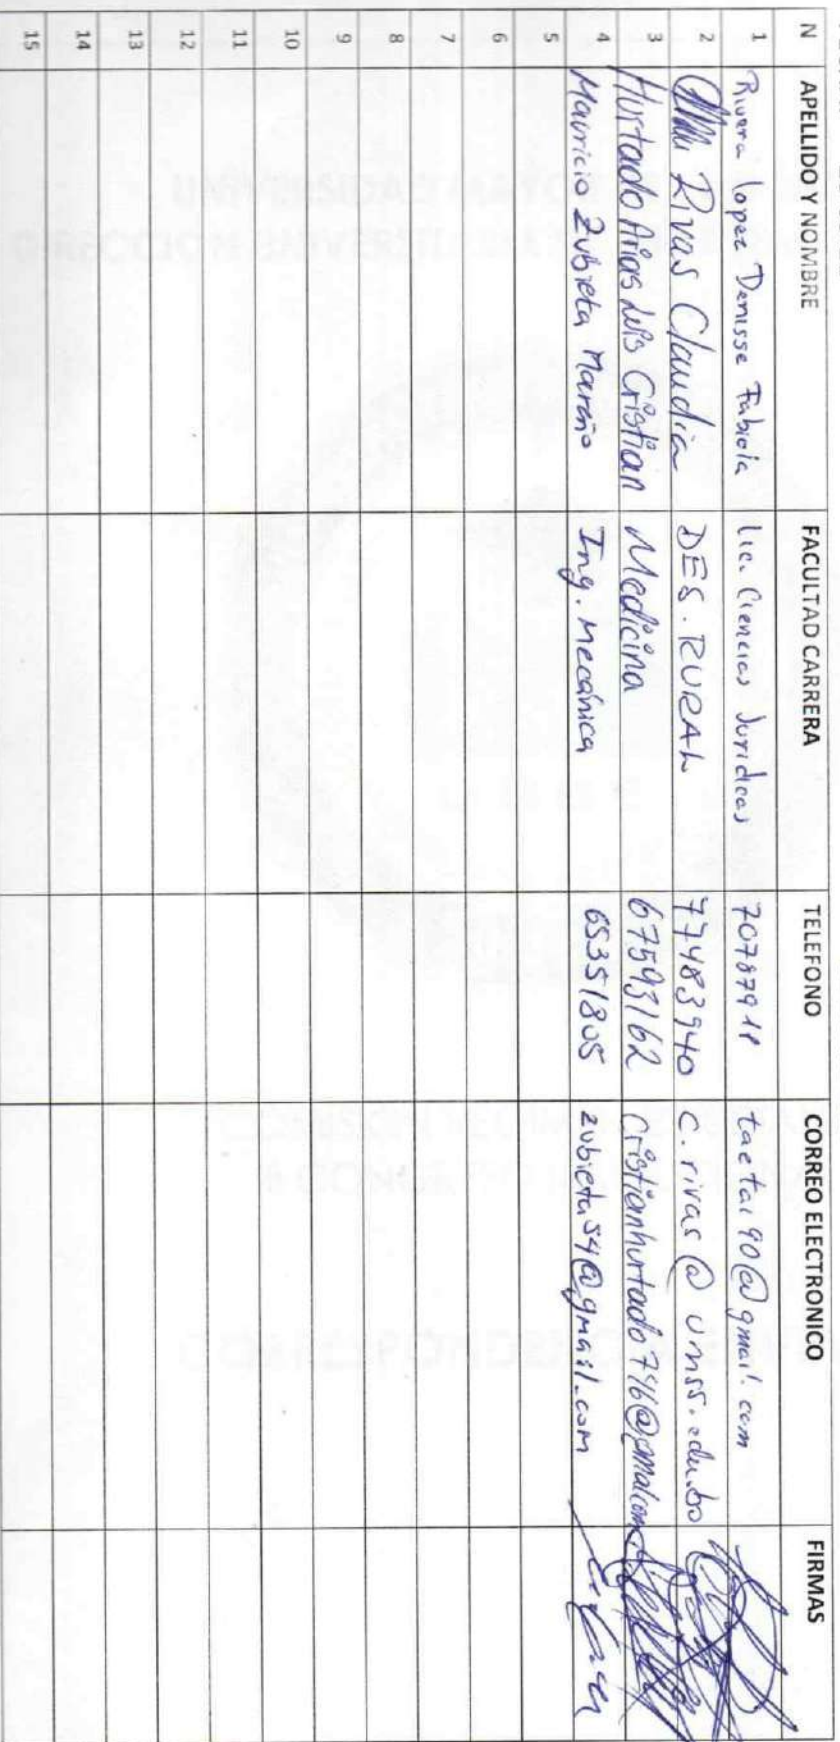 N APELLIDO Y NOMBRE FACULTAD CARRERA TELEFONO CORREO ELECTRONICO FIRMAS
1 Rivera lopez Denisse Fabiola lic. Ciencias Juridicas @gmail.com
2 Rivas Claudia DES. RURAL 77483940 c.rivas@umss.edu.bo
3 Hurtado Arias Luis Cristian Medicina 67593162 Cristianhurtado746@gmail.com
4 Mauricio Zubieta Mareño Ing. Mecánica 65351805 zubieta54@gmail.com
5
6
7
8
9
10
11
12
13
14
15